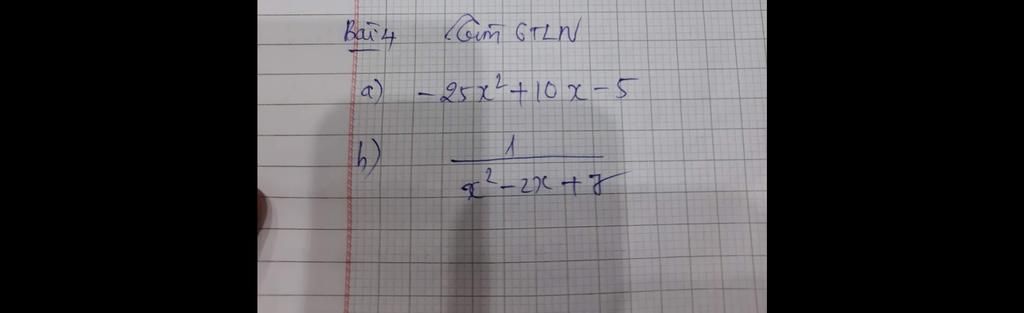 Bài 4 Tìm GTLN
a) -25x² + 10x - 5
b) 1
x² - 2x + 7